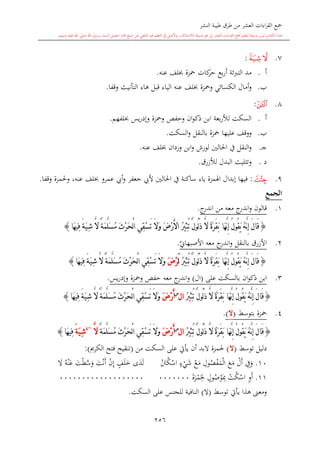 جمع القراءات العشر من طرق طيبة النشر
٧. لَّا شِيَةَ :
أ . مد التبرئة أربع حركات حمزة بخلف عنه.
ب. وأمال الكسائي وحمزة بخلف عنه الياء قبل هاء التأنيث وقفا.
٨.
أ . السكت للأربعة ابن ذكوان وحفص وحمزة وإدريس بخلفهم.
ب. ووقف عليها حمزة بالنقل والسكت.
جـ. والنقل في الحالين لورش وابن وردان بخلف عنه.
د . وتثليث البدل للأزرق.
٩. جِئْتَ : فيها إبدال الهمزة ياء ساكنة في الحالين لأبي جعفر وأبي عمرو بخلف عنه، ولحمزة وقفا.
الجمع
١. قالون واندرج معه من اندرج.
﴿ قَالَ إِنَّهُۥ يَقُولُ إِنَّهَا بَقَرَةٌ لَّا ذَلُولٌ تُثِيرُ الْأَرْضَ وَلَا تَسْقِي الْحَرْثَ مُسَلَّمَةٌ لَّا شِيَةَ فِيهَا ﴾
٢. الأزرق بالنقل واندرج معه الأصبهاني.
﴿ قَالَ إِنَّهُۥ يَقُولُ إِنَّهَا بَقَرَةٌ لَّا ذَلُولٌ تُثِيرُ الَرْضَ وَلَا تَسْقِي الْحَرْثَ مُسَلَّمَةٌ لَّا شِيَةَ فِيهَا ﴾
٣. ابن ذكوان بالسكت على (ال) واندرج معه حفص وحمزة وإدريس.
﴿ قَالَ إِنَّهُۥ يَقُولُ إِنَّهَا بَقَرَةٌ لَّا ذَلُولٌ تُثِيرُ الْأَرْضَ وَلَا تَسْقِي الْحَرْثَ مُسَلَّمَةٌ لَّا شِيَةَ فِيهَا ﴾
٤. حمزة بتوسط (لا).
﴿ قَالَ إِنَّهُۥ يَقُولُ إِنَّهَا بَقَرَةٌ لَّا ذَلُولٌ تُثِيرُ الْأَرْضَ وَلَا تَسْقِي الْحَرْثَ مُسَلَّمَةٌ لَّا شِيَةَ فِيهَا ﴾
دليل توسط (لا) لحمزة لابد أن يأتي على السكت من (تنقيح فتح الكريم):
١٠. وَفِي أَلْ مَعَ الْمَفْصُولِ مَعْ شَيْءٍ اسْكُتَنْ لَدَى خَلَفٍ إِنْ أَنْتَ وَسَّطْتَ عَنْهُ لَا
١١. أَوِ اسْكُتْ بِمَوْصُولٍ لِحَمْزَةَ ........ ..................
ومعنى هذا يأتي توسط (لا) النافية للجنس على السكت.
٢٥٦